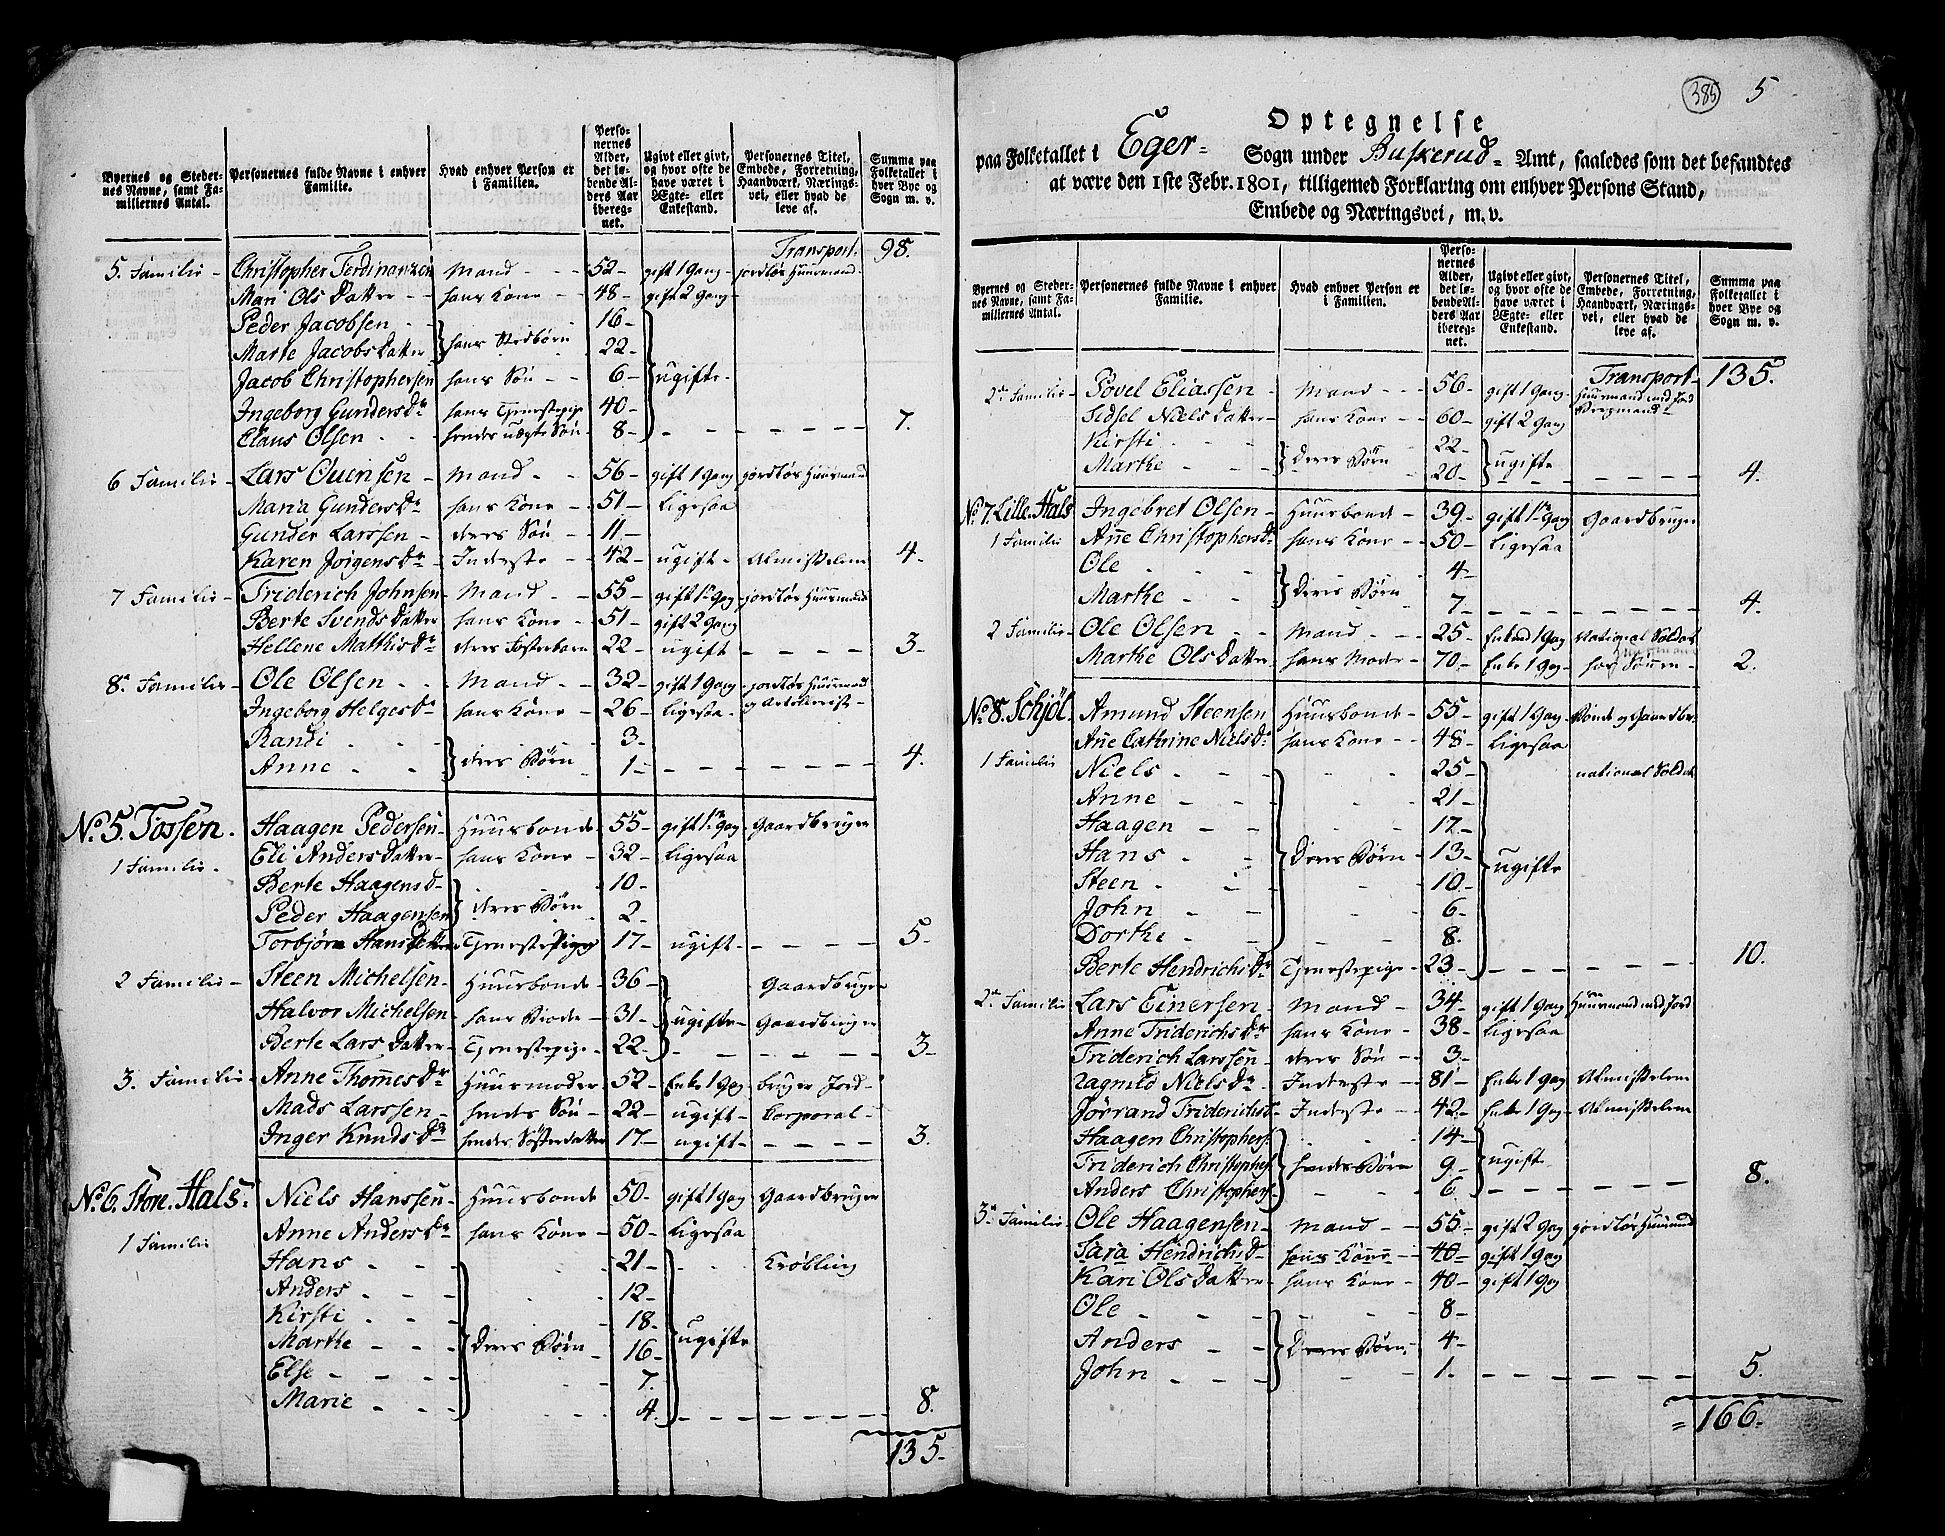 Byernes og Stedernes Navne, samt Familiernes Antal. | Personernes fulde Navne i enhver Familie. | Hvad enhver Person er i Familien. | Personernes Alder, det løbende Alders Aar iberegnet. | Ugivt eller givt, og hvor ofte de have været i Ægte- eller Enkestand. | Personernes Titel, Embede, Forretning, Haandværk, Næringsvei, eller hvad de leve af. | Summa paa Folketallet i hver Bye og Sogn m. v.
Transport. 98.
5. Familie - Christopher Ferdinanzen Mand - 52 - gift 1 Gang - jordløs Huusmand
Mari Ols Datter - hans Kone - 48 - gift 2 Gang
Peder Jacobsen - 16 -
Marte Jacobs Datter - hans Stedbørn 22 -
Jacob Christophersen hans Søn - 6 - ugifte
Ingeborg Gunders Dr hans Tjenestepige 40 -
Claus Olsen - hendes uægte Søn - 8 - 7.
6 Familie - Lars Evensen - Mand - 56 - gift 1 Gang jordløs Huusmand
Maria Gunders Dr hans Kone - 51 - Ligesaa
Gunder Larssen - deres Søn - 11 -
Karen Jørgens Dr - Inderste - 42 - ugift - Almisselem 4.
7 Familie - Friderich Johnsen Mand - 55 - gift 1 Gang jordløs Huusmand
Berte Svends Datter hans Kone - 51 - gift 2 Gang
Hellene Mathis Dr deres Fosterbarn 22 - ugift - 3 -
8 Familie - Ole Olsen - Mand - 32 - gift 1 Gang - jordløs Huusmand
Ingeborg Helges Dr hans Kone - 26 - Ligesaa -
Randi - 3 -
Anne - deres Børn 1 - 4.
No. 5. Fossen. Haagen Pedersen - Huusbonde - 55 - gift 1 Gang Gaardbruger
1 Familie - Eli Anders Datter - hans Kone - 32 - Ligesaa
Berte Haagens d - 10 -
Peder Haagensen deres Børn 2 -
Torbjørn Hans Datter Tjeneste Pige 17 - ugift - 5 -
2 Familie - Steen Michelsen - Huusbonde - 36 - Gaardbruger
Halvor Michelsen hans Broder - 31 - ugifte - Gaardbruger
Berte Lars Datter - Tjenestepige - 22 - 3 -
3. Familie - Anne Thommes Dr Huusmoder - 52 - Enke 1 Gang bruger Jord -
Mads Larssen - hendes Søn - 22 - ugift - Corporal -
Inger Knuds Dr hendes Søsterdatter 17 - ugift - 3.
No. 6. Store Hals - Niels Hanssen - Huusbonde 50 - gift 1 Gang Gaardbruger
1 Familie Anne Anders Dr hans Kone - 50 - Ligesaa
Hans - 21 - Krøbling
Anders - 12 -
Kirsti - 18 -
Marthe - Deres Børn 16 - ugifte
Else - 7.
Marie - 4. 8.
135 -
385 5
Optegnelse
paa Folketallet i Eger - Sogn under Buskerud - Amt, saaledes som det befandtes
at være den 1ste Febr. 1801, tilligemed Forklaring om enhver Persons Stand,
Embede og Næringsvei, m. v.
Byernes og Stedernes Navne, samt Familiernes Antal. | Personernes fulde Navne i enhver Familie. | Hvad enhver Person er i Familien. | Personernes Alder, det løbende Alders Aar iberegnet. | Ugivt eller givt, og hvor ofte de have været i Ægte- eller Enkestand. | Personernes Titel, Embede, Forretning, Haandværk, Næringsvei, eller hvad de leve af. | Summa paa Folketallet i hver Bye og Sogn m. v.
Transport - 135.
2 Familie - Povel Eliassen - Mand - 56 - gift 1 Gang - Huusmand med Jord
Sidsel Niels Datter - hans Kone - 60 - gift 2 Gang
Kirsti - 22 -
Marthe - deres Børn 20 - ugifte 4.
No. 7. Lille Hals Ingebret Olsen - Huusbonde - 39 - gift 1 Gang Gaardbruger
1 Familie Anne Christophers D hans Kone - 50 - Ligesaa
Ole - 4 -
Marthe - Deres Børn 7 - 4.
2 Familie - Ole Olsen - Mand - 25 - Enkemd 1 Gang National Soldat
Marthe Ols Datter hans Moder - 70 - Enke 1 Gang - hos Sønnen - 2.
No. 8. Schjøl. Amund Steensen Huusbonde - 55 - gift 1 Gang - Bonde og Gaardbr.
Anne Cathrine Niels Dr hans Kone - 48 - Ligesaa
1 Familie Niels - 25 - national Soldat
Anne - 21 -
Haagen - 17 -
Hans - Deres Børn - 13 - ugifte
Steen - 10 -
John - 6 -
Dorthe - 8.
Berte Hendrichs Dr Tjenestepige - 23 - 10.
2 Familie Lars Einersen - Mand - 34 - gift 1 Gang Huusmand med Jord
Anne Friderichs Dr hans Kone - 38 - Ligesaa
Friderich Larssen - deres Søn - 3 -
Ragnild Niels Dr Inderste - 81 - Enke 1 Gang Almisselem
Jørrand Friderichs D Inderste - 42 - Enke 1 Gang Almisselem
Haagen Christophers. 14 -
Friderich Christophers. hendes Børn 9 - ugift
Anders Christophers. 6 - 8.
3 Familie - Ole Haagensen - Mand - 55 - gift 2 Gang jordløs Huusmand
Sara Hendrichs D hans Kone - 40 - gift 1 Gang
Kari Ols Datter - hans Kone - 40 - gift 1 Gang
Ole - 8 -
Anders - Deres Børn 4 -
John - 1. 5.
= 166 -